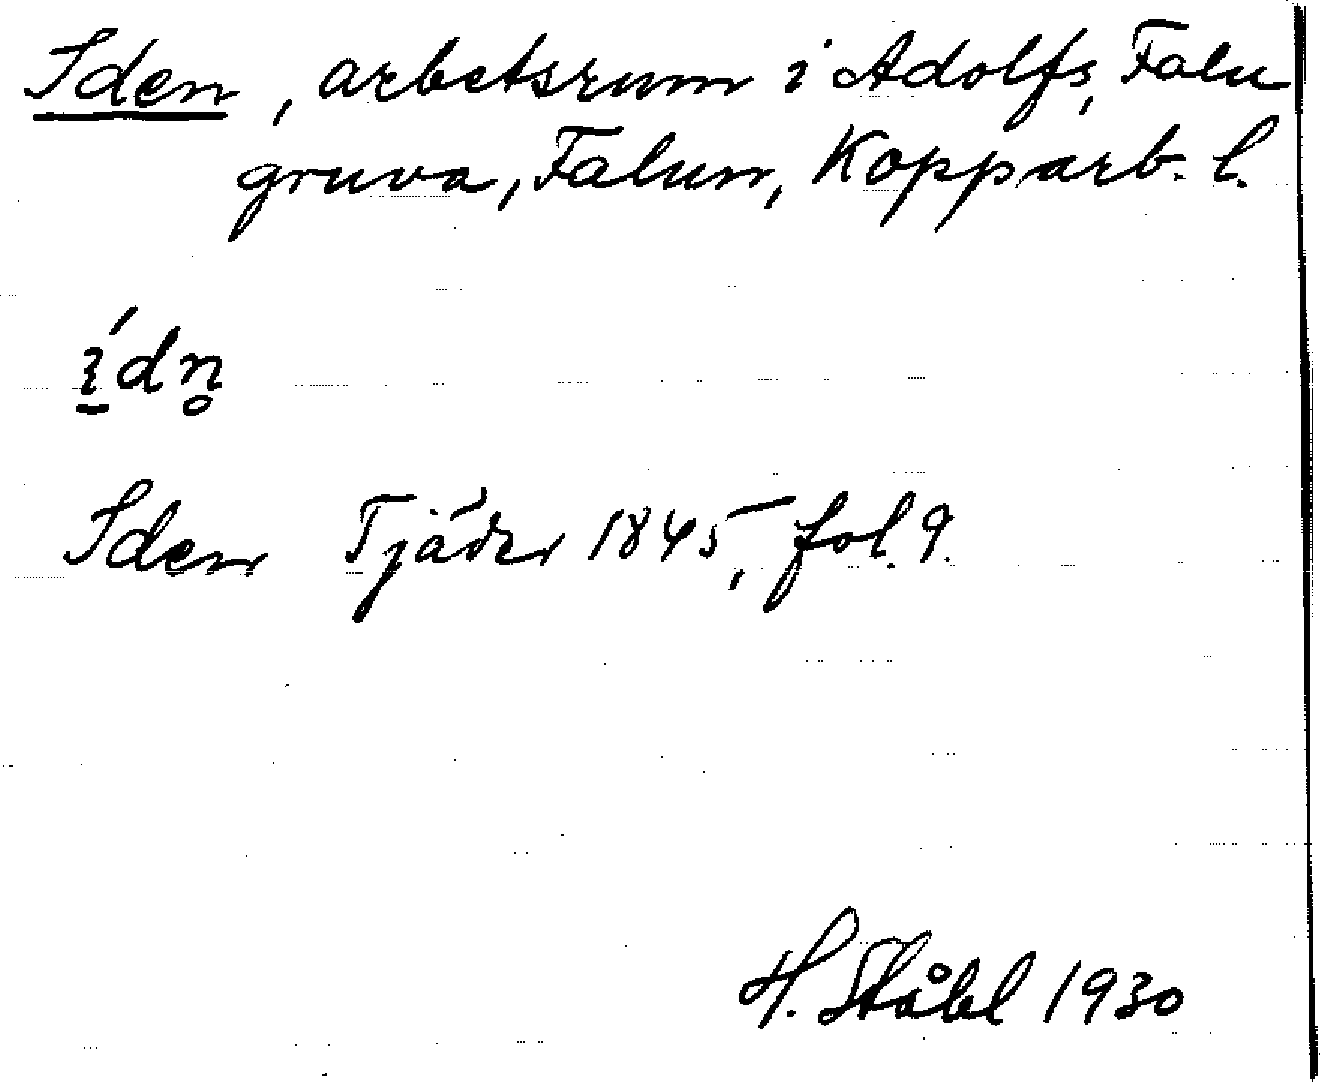 Iden, arbetsrum i Adolfs, Falu
gruva, Falun, Kopparb. l.
í̱dn̥
Iden Tjäder 1845, fol. 9.
H. Ståhl 1930